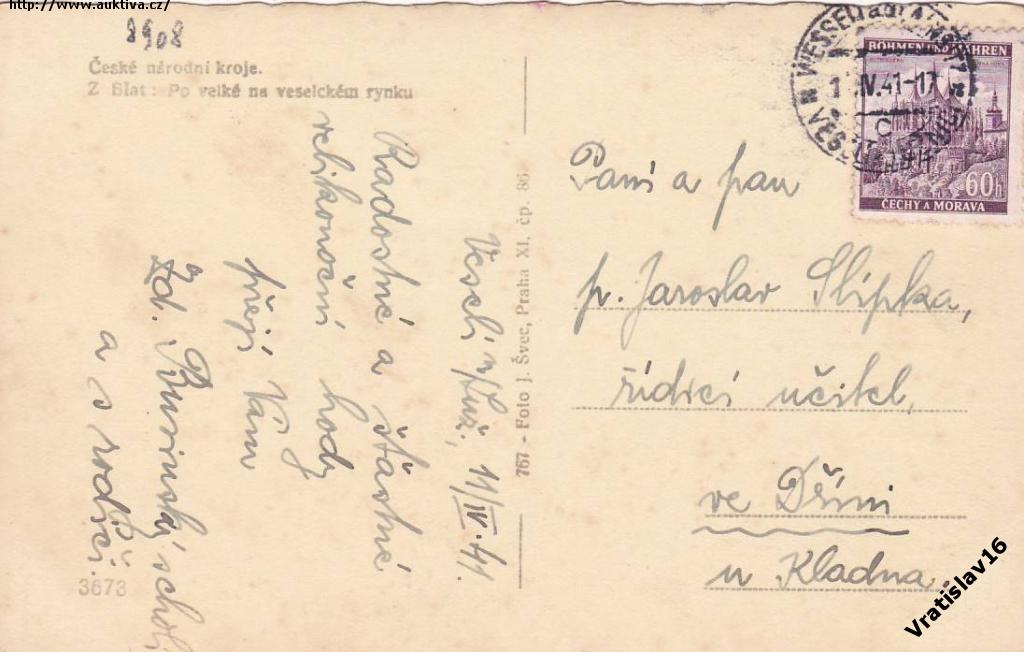 http://www.auktiva.cz/
8908
České národní kroje.
Z Blat: Po velké na veselckém rynku
Veselí n/Luž., 11/IV.41.
Radostné a šťastné
velikonoční hody
přejí Vám
Zd.
a s rodiči.
3673
767 - Foto J. Švec, Praha XI, čp. 86
BÖHMEN UND MÄHREN
60h
ČECHY A MORAVA
IV.41-17
Paní a pan
p. Jaroslav Slípka,
řídící učitel,
ve Dříni
u Kladna.
Vratislav16